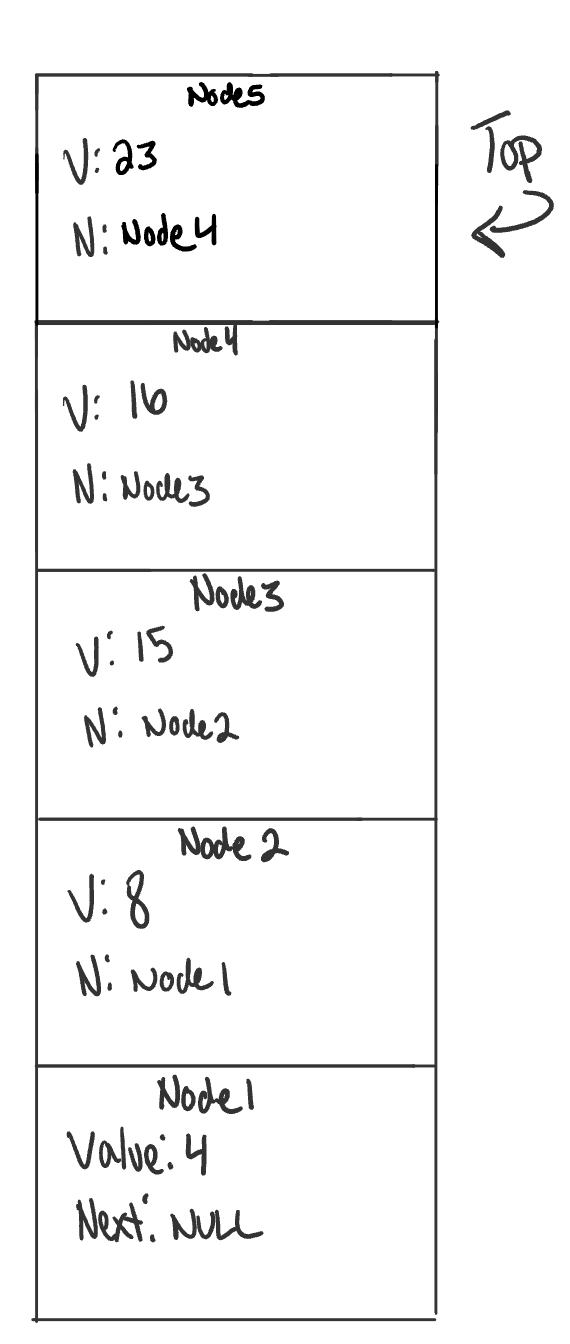 Node5
V: 23
Top
N: Node4
Node4
V: 16
N: Node3
Node3
V: 15
N: Node2
Node 2
V: 8
N: Node1
Node1
Value: 4
Next: NULL